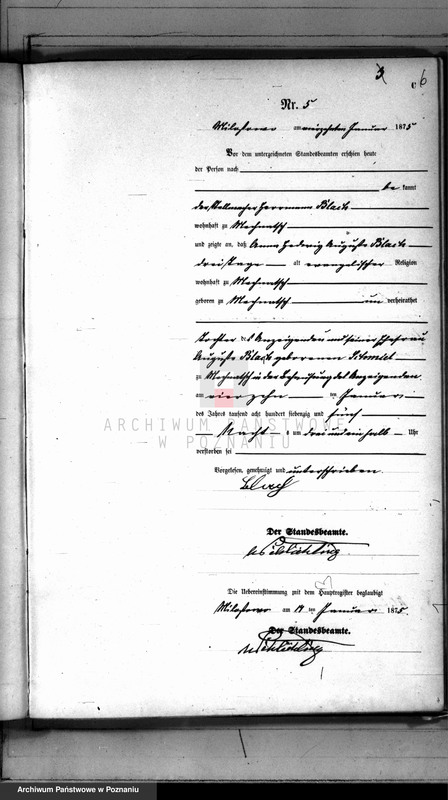 3
6
Nr. 5
Milostowo am vierzehnten Januar 1875
Vor dem unterzeichneten Standesbeamten erschien heute
der Person nach
be kannt
der Stellmacher Herrmann Blach
wohnhaft zu Mechnatsch
und zeigte an, daß Anna Hedwig Auguste Blach
drei Tage alt evangelischer Religion
wohnhaft zu Mechnatsch
geboren zu Mechnatsch un verheirathet
Tochter des Anzeigenden und seiner Ehefrau
Auguste Blach geborenen
zu Mechnatsch in der Behausung des Anzeigenden
am vierzehn ten Januar
des Jahres tausend acht hundert siebenzig und fünf
Nachts um drei und ein halb Uhr
verstorben sei
Vorgelesen, genehmigt und unterschrieben
Blach
Der Standesbeamte.
Die Uebereinstimmung mit dem Hauptregister beglaubigt
Milostowo am 14 ten Januar 1875.
Der Standesbeamte.
ARCHIWUM PAŃSTWOWE
W POZNANIU
Archiwum Państwowe w Poznaniu